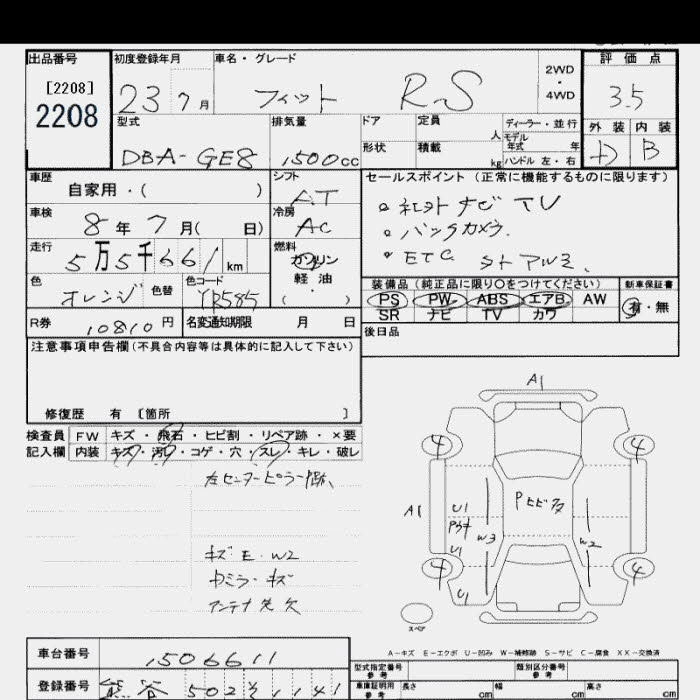 出品番号 初度登録年月 車名・グレード 2WD・4WD 評価点
[2208]
2208 23 7月 フィット RS 3.5
型式 排気量 ドア 定員 人 ディーラー・並行 外装 内装
DBA-GE8 1500cc 形状 積載 kg モデル年式 年 ハンドル 左・右 D B
車歴 シフト セールスポイント (正常に機能するものに限ります)
自家用・( ) AT
車検 冷房 ・社外ナビ TV
8年7月( 日) AC ・バックカメラ
走行 燃料 ・ETC 外アルミ
5万5千661km ガソリン
軽油
色 色替 色コード ( ・ ) 装備品 (純正品に限り〇をつけてください) 新車保証書
オレンジ YR585 PS PW ABS エアB AW 有・無
SR ナビ TV カワ
R券 10810円 名変通知期限 月 日 後日品
注意事項申告欄 (不具合内容等は具体的に記入して下さい)
修復歴 有 [箇所 ]
検査員 FW キズ・飛石・ヒビ割・リペア跡・×要
記入欄 内装 キズ・汚レ・コゲ・穴・スレ・キレ・破レ
左センターピラー
キズ・E・W2
ミラー・キズ
アンテナ先欠
A1
4 4
A1 U1 Pヒビ
U1 W3 W2
4 4
U1
スペア
A-キズ E-エクボ U-凹み W-補修跡 S-サビ C-腐食 XX-交換済
車台番号 1506611
型式指定番号 参考 類別区分番号 参考
登録番号 熊谷 502 そ 1141
車庫証明用 参考 長さ cm 幅 cm 高さ cm